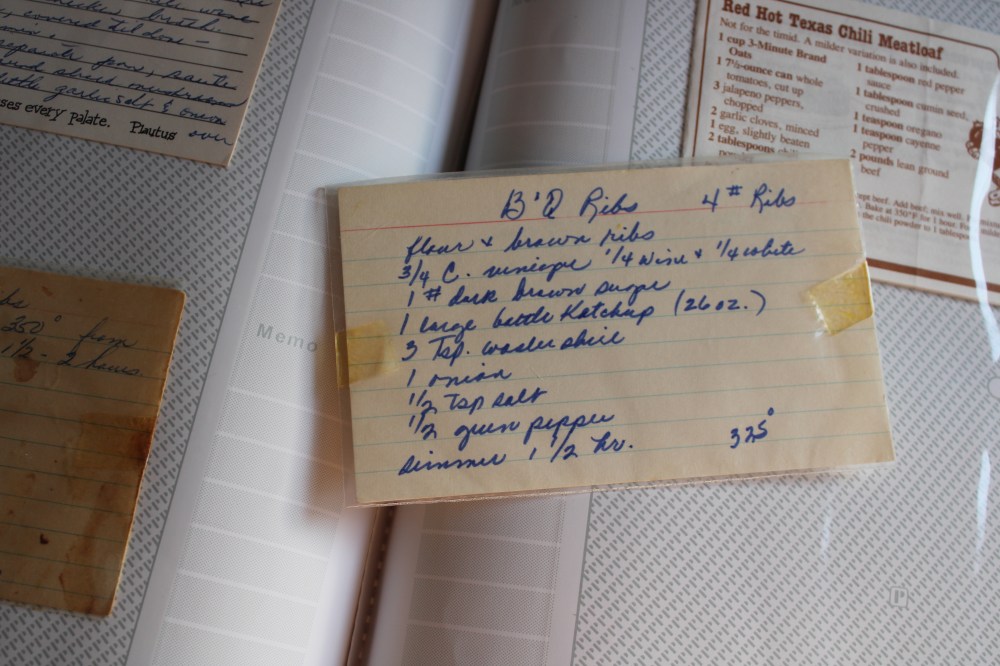 covered
separate pans, saute
and sliced mushrooms
garlic salt & onion
ses every palate. Plautus over
350° from
1 1/2 - 2 hours.
Memo
B'Q Ribs 4 # Ribs
flour & brown ribs
3/4 C. vinegar 1/4 wine & 1/4 white
1 # dark brown sugar
1 large bottle Ketchup (26 oz.)
3 Tsp. wostershire
1 onion
1/2 Tsp salt
1/2 green pepper
simmer 1 1/2 hr. 325°
Red Hot Texas Chili Meatloaf
Not for the timid. A milder variation is also included.
1 cup 3-Minute Brand
Oats
1 7½-ounce can whole
tomatoes, cut up
3 jalapeno peppers,
chopped
2 garlic cloves, minced
1 egg, slightly beaten
2 tablespoons
1 tablespoon red pepper
sauce
1 tablespoon cumin seed,
crushed
1 teaspoon oregano
1 teaspoon cayenne
pepper
2 pounds lean ground
beef
beef. Add beef; mix well.
Bake at 350°F for 1 hour.
the chili powder to 1